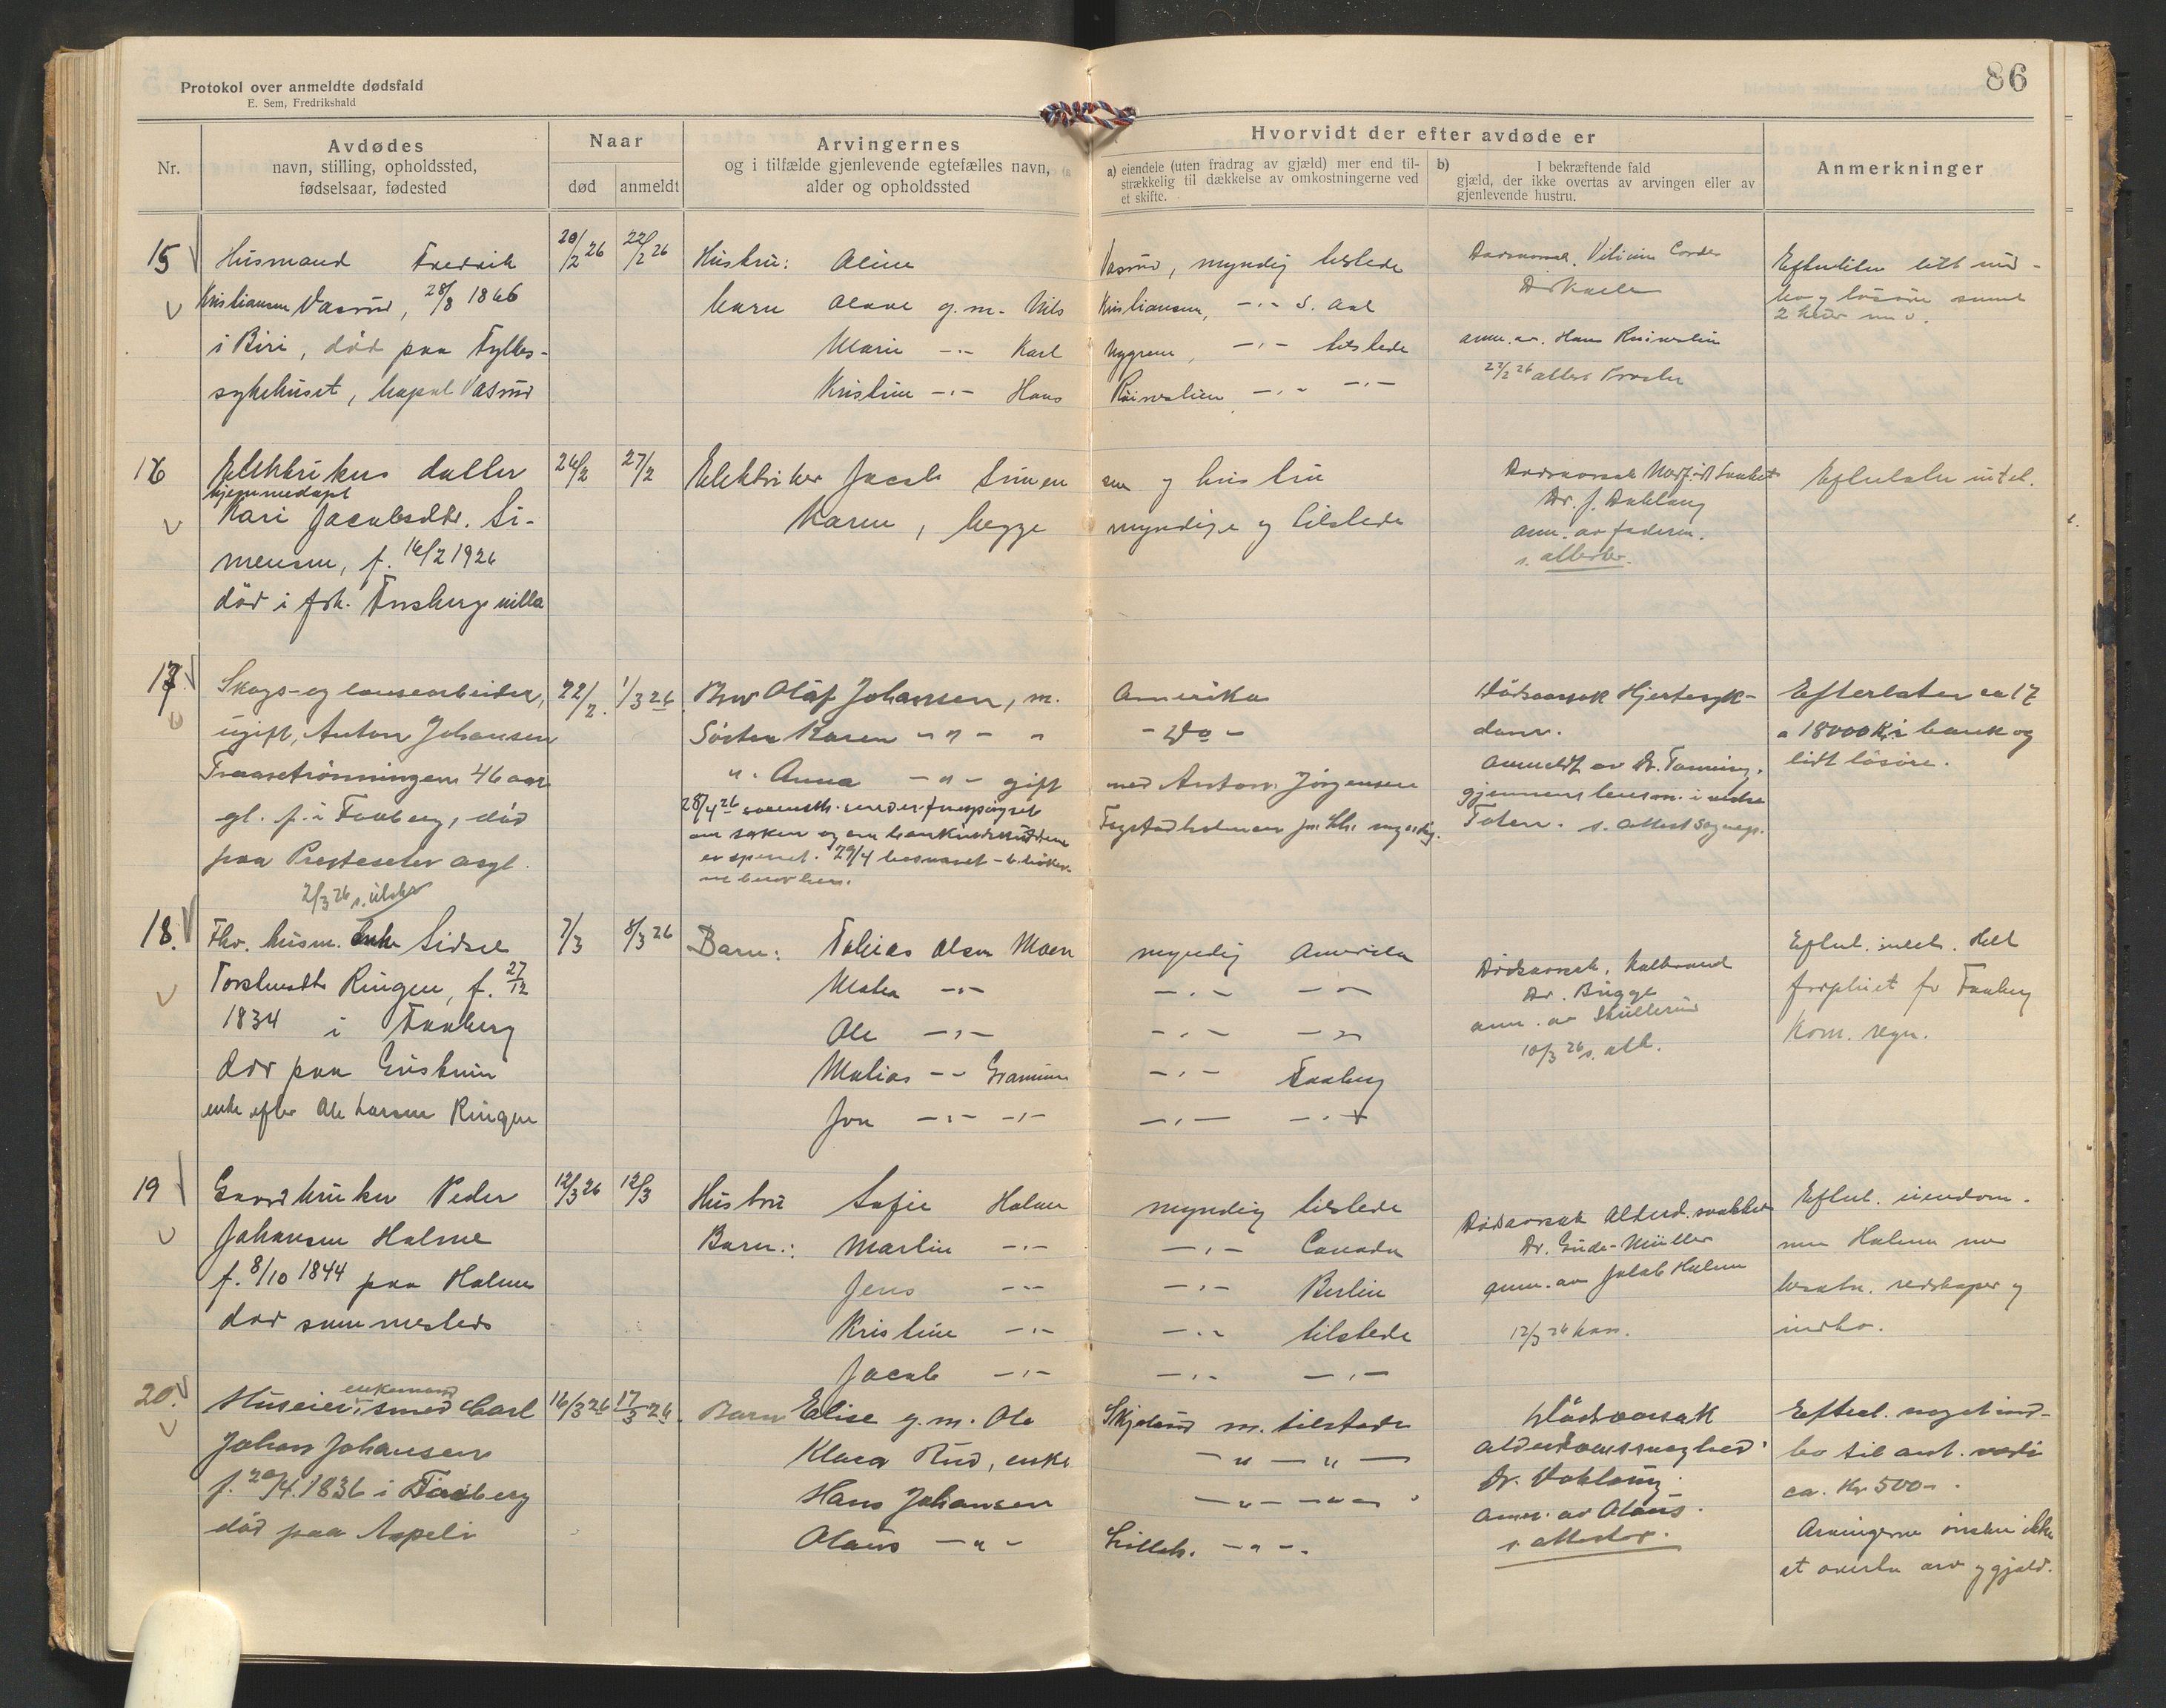 Protokol over anmeldte dødsfald
E. Sem, Fredrikshald
86
Nr.
Avdødes
navn, stilling, opholdssted,
fødselsaar, fødested
Naar
død
anmeldt
Arvingernes
og i tilfælde gjenlevende egtefælles navn,
alder og opholdssted
Hvorvidt der efter avdøde er
a) eiendele (uten fradrag av gjæld) mer end til-
strækkelig til dækkelse av omkostningerne ved
et skifte.
b) I bekræftende fald
gjæld, der ikke overtas av arvingen eller av
gjenlevende hustru.
Anmerkninger
15
Husmand Fredrik
Kristiansen Vasrud, 28/8 1866
i Biri, død paa Fylkes-
sykehuset, Vasrud
20/2 26
22/2 26
Hustru: Aline Vasrud, myndig tilstede
barn Olave g.m. Nils Kristiansen, -"- S. Aal
Marie -"- Karl Nygren, -"- tilstede
Kristine -"- Hans -"- -"-
Dødsaarsak
anm. av. Hans
22/2 26 attest
Efterlater litt ind-
bo og løsøre samt
2
16
Elektrikers datter
hjemmedøpt
Kari Jacobsdtr. Si-
mensen, f. 16/2 1926
død i fsk. Tnsberg villa
26/2
27/2
Elektriker Jacob Simensen og hustru
Karen, begge myndige og tilstede
Dødsaarsak Medf. Svakhet
Dr. J. Dahlaug
anm. av faderen.
s. attester.
Efterlater intet.
17
Skogs- og løusearbeider,
ugift, Anton Johansen
46 aar
gl. f. i Faaberg, død
paa Presteseter asyl.
2/3 26 s.
22/2.
1/3 26
Bror Olaf Johansen, m. Amerika
Søster Karen -"- " - Do -
" Anna -"- gift med Anton Jørgensen
28/4 26
om saken og om bankindskuddene
er sperret. 29/4 besvaret
myndig.
Dødsaarsak Hjertesyk-
dom.
Anmeldt av Dr.
gjennem lensm. i
Toten. s. attest sognepr.
Efterlater ca 17
a 18000 Kr i bank og
lidt løsøre.
18.
Fhv. husm. Enke Sidsel
Ringen, f. 27/12
1834 i Faaberg
død paa
enke efter Ole Larsen Ringen
7/3
8/3 26
Barn: Tobias Olsen Moen myndig Amerika
-"- -"- -"-
Ole -"- -"- -"-
Matias -"- -"- Faaberg
Jon -"- -"- -"- -"-
Dødsaarsak, Kolbrand
Dr. Bugge
anm. av
10/3 26 s. att.
Efterl. intet. Helt
forpleiet for Faaberg
Kom. regn.
19
Gaardbruker Peder
Johansen Holme
f. 8/10 1844 paa Holme
død sammesteds
12/3 26
12/3
Hustru Sofie Holme myndig tilstede
Barn: Martin -"- -"- Canada
Jens -"- -"- Berlin
Kristine -"- -"- tilstede
Jacob -"- -"- -"-
Dødsaarsak Alderd. svakhet
Dr. Gude-Müller
anm. av Jakob Holme
12/3 26
Efterl. eiendom-
men Holme med
besætn. redskaper og
indbo.
20.
enkemand
Huseier, smed Carl
Johan Johansen
f. 20/4 1836 i Faaberg
død paa Aspeli
16/3 26
17/3 26.
Barn Elise g.m. Ole Skjelend m. tilstede
Klara Rud, enke -"- -"-
Hans Johansen -"- -"-
Olaus -"- Lilleh. -"-
Dødsaarsak
alderdomssvaghed.
Dr. Dahlaug.
Anm. av Olaus.
s. attester.
Efterl. noget ind-
bo til ant. verdi
ca. Kr. 500-.
Arvingerne ønsker ikke
at overta arv og gjæld.